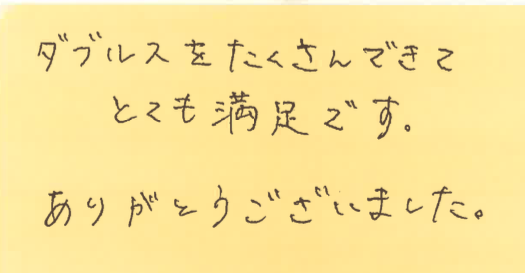 ダブルスをたくさんできて
とても満足です。
ありがとうございました。